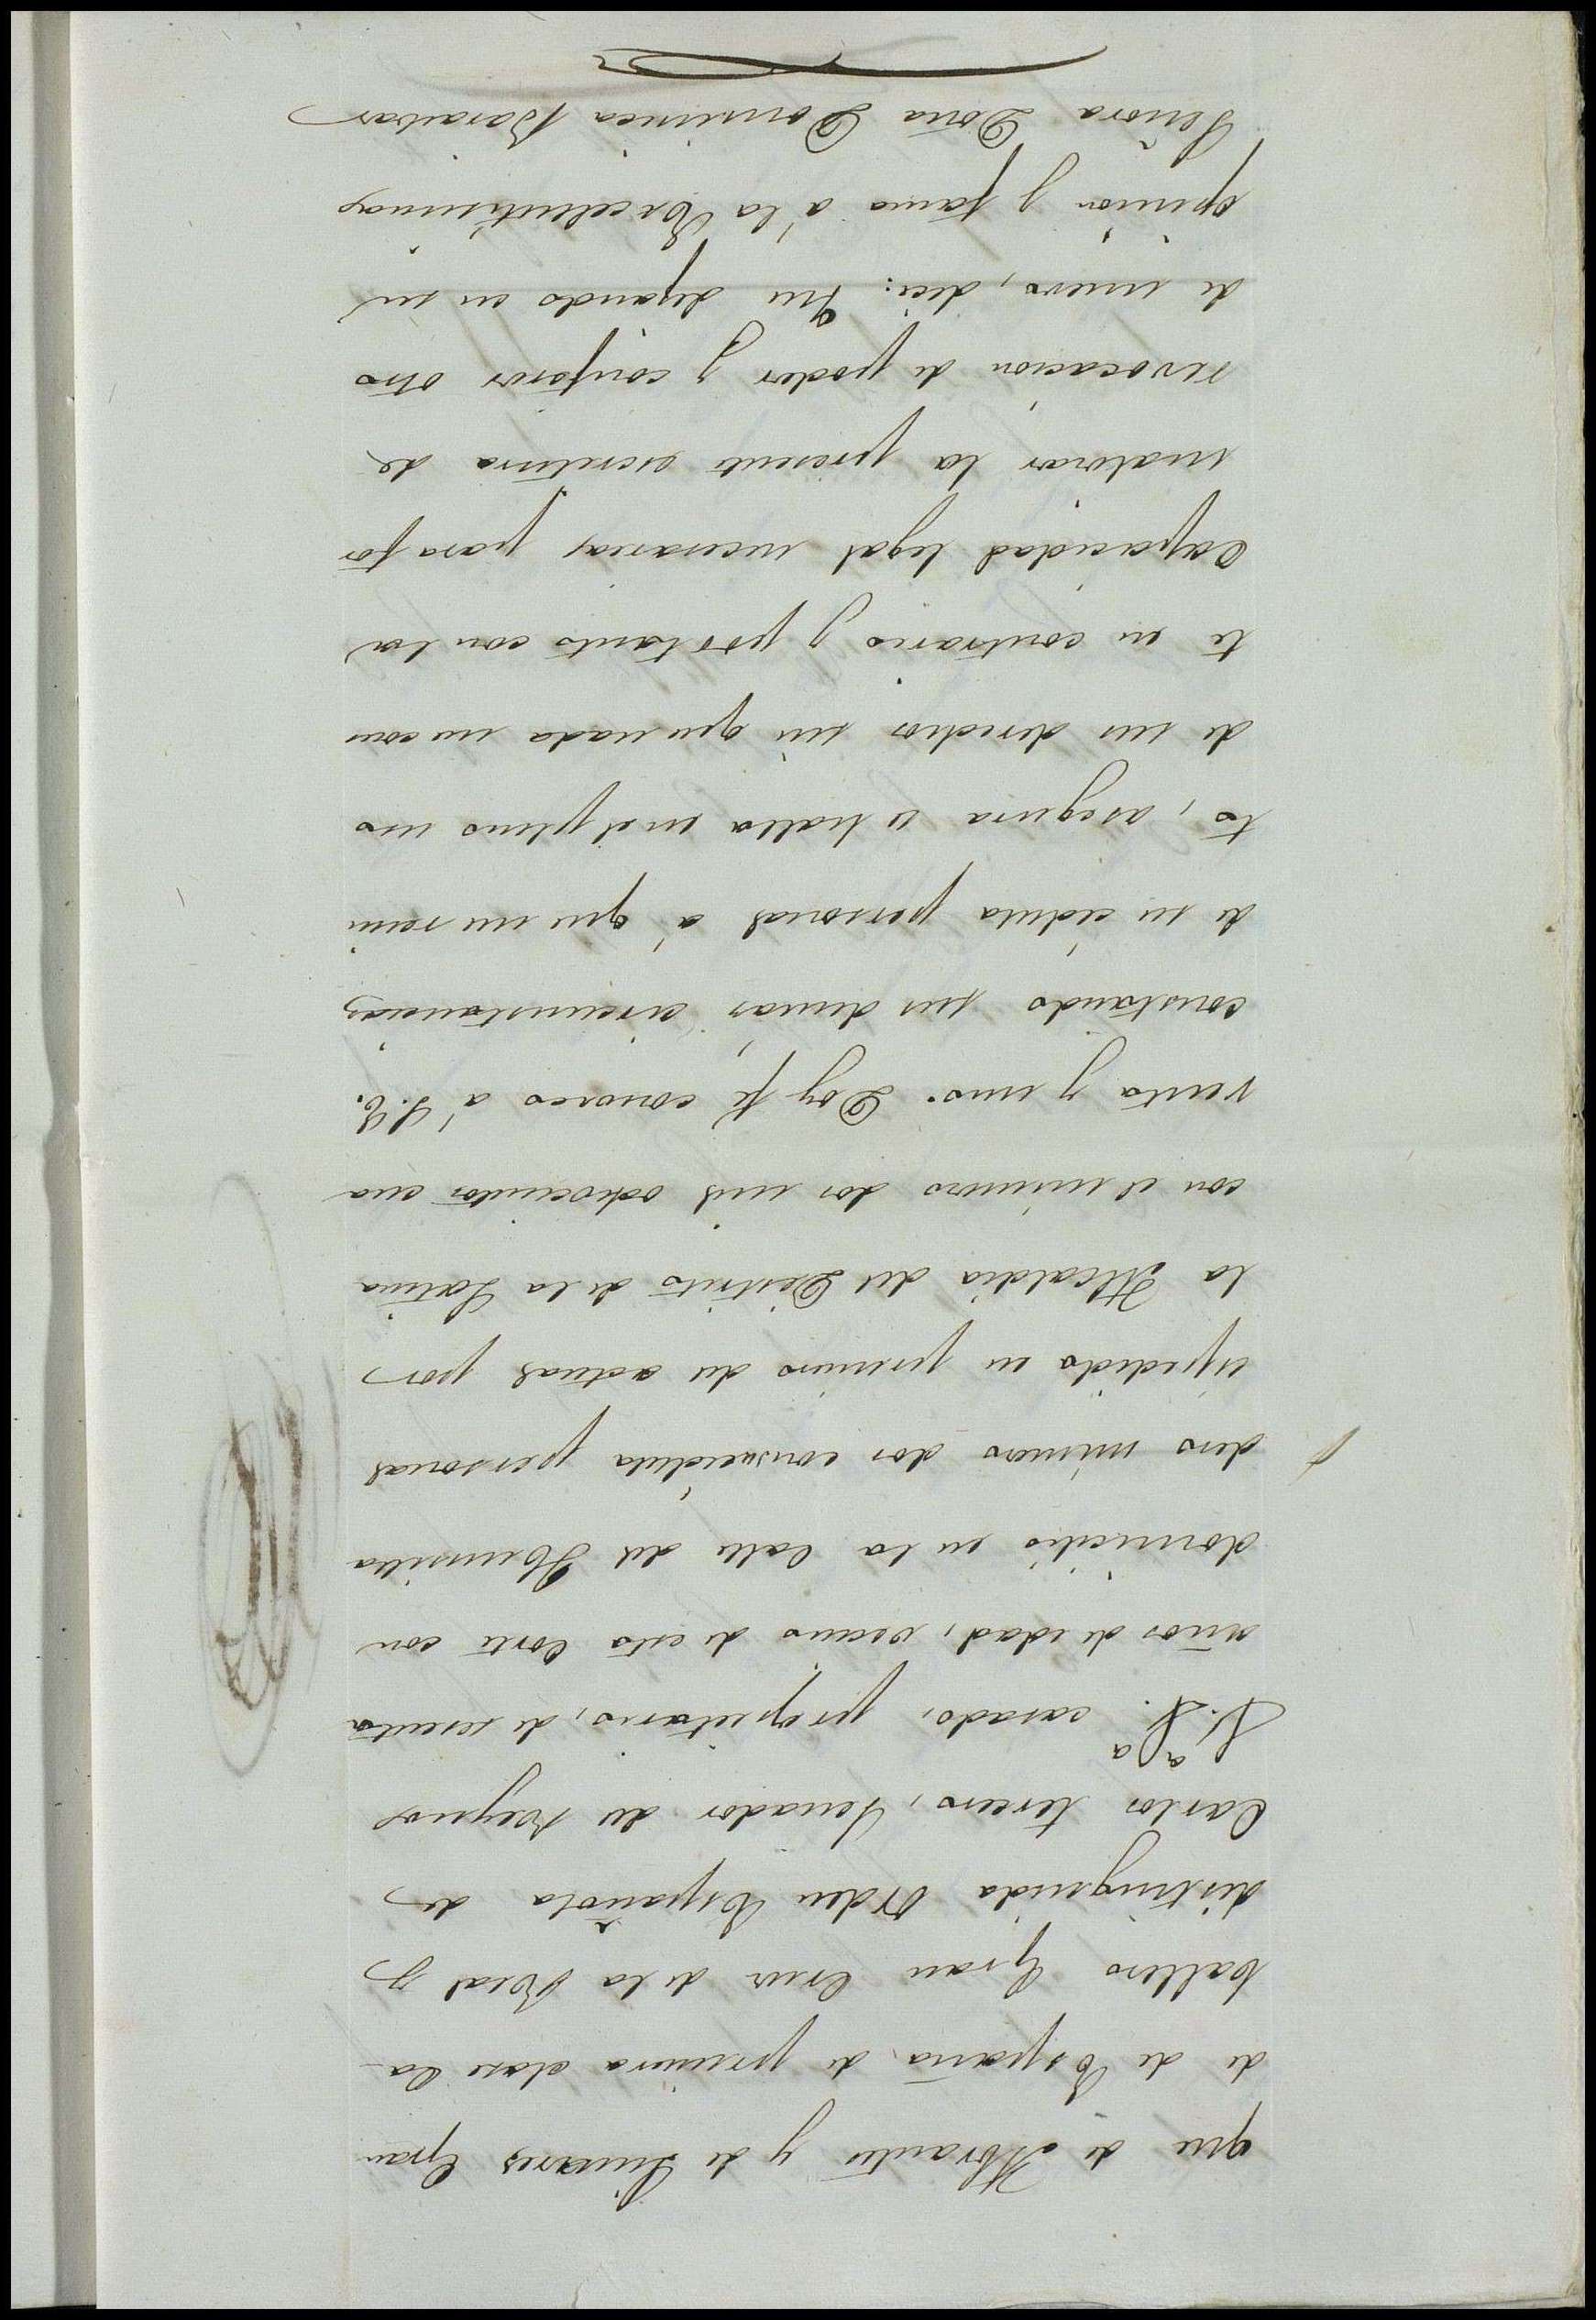 que de Abrantes y de Linares Gran
de de España de primera clase Ca-
ballero Gran Cruz de la Real y
distinguida Orden Española de
Carlos tercero, Senador del Reyno
V.ª S.ª casado, propietario, de sesenta
años de edad, vecino de esta Corte con
domicilio en la Calle del Humilla
dero número dos con su cédula personal
espedida en primero del actual por
la Alcaldia del Distrito de la Latina
con el número dos mil ochocientos cua
renta y uno. Doy fé conozco á S.E.
constando sus demas circunstancias
de su cédula personal á que me remi
to, asegura se halla en el pleno uso
de sus derechos sin que nada me cons
te en contrario y por tanto con la
capacidad legal necesaria para for
malizar la presente escritura de
revocacion de poder y conferir otro
de nuevo, dice: Que dejando en su
opinion y fama á la Excelentisima
Señora Doña Dominica Baraibar